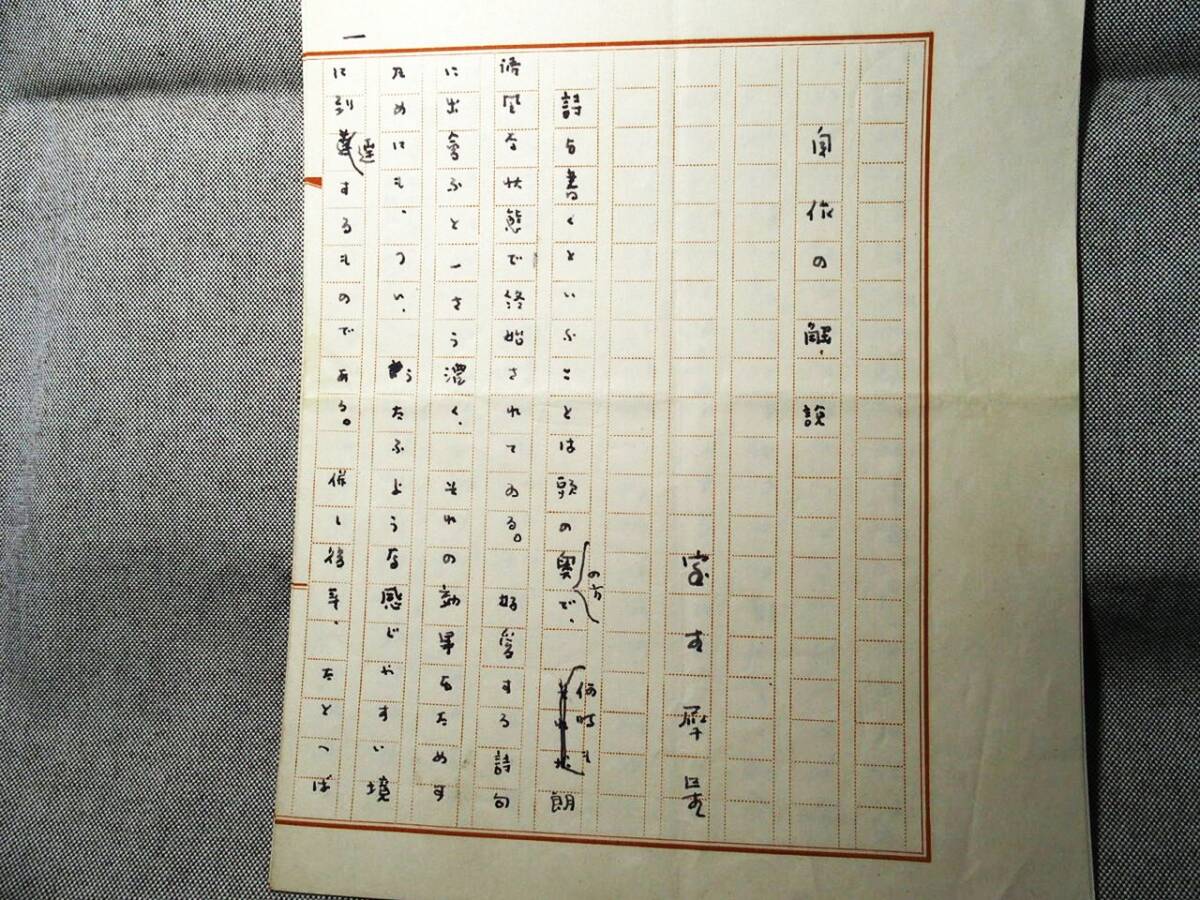 自作の解説
室生犀星
詩を書くといふことは頭の奥の方で、何時も朗
誦風な状態で終始されてゐる。好愛する詩句
に出會ふと一さう濃く、それの効果をためす
ためにも、つい、うたふような感じやすい境
に到達するものである。併し後年、たとへば
一